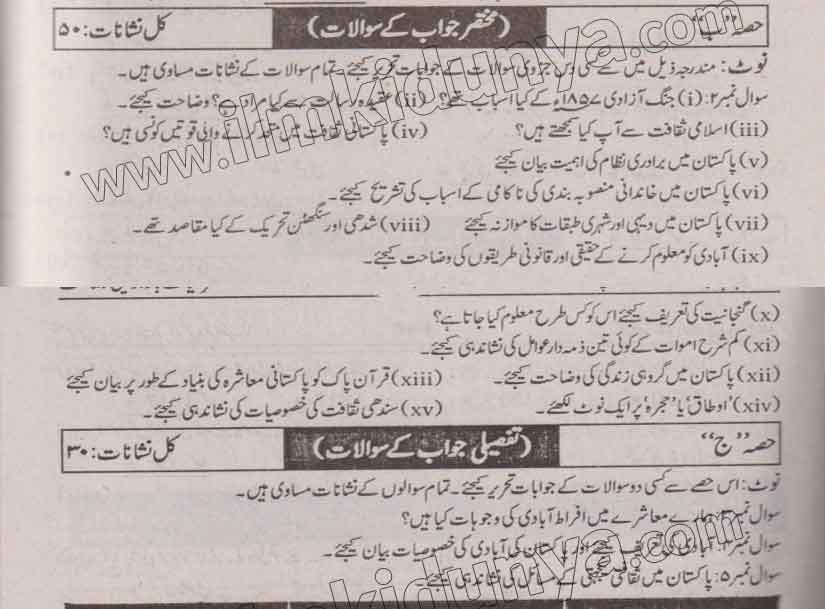 حصہ ’’ب‘‘ (مختصر جواب کے سوالات) کل نشانات: ۵۰
نوٹ: مندرجہ ذیل میں سے کسی دس جزوی سوالات کے جوابات تحریر کیجئے۔ تمام سوالات کے نشانات مساوی ہیں۔
سوال نمبر۲: (i) جنگ آزادی ۱۸۵۷ء کے کیا اسباب تھے؟ (ii) عقیدہ رسالت سے کیا مراد ہے؟ وضاحت کیجئے۔
(iii) اسلامی ثقافت سے آپ کیا سمجھتے ہیں؟ (iv) پاکستانی ثقافت میں متحد کرنے والی قوتیں کونسی ہیں؟
(v) پاکستان میں برادری نظام کی اہمیت بیان کیجئے
(vi) پاکستان میں خاندانی منصوبہ بندی کی ناکامی کے اسباب کی تشریح کیجئے۔
(vii) پاکستان میں دیہی اور شہری طبقات کا موازنہ کیجئے (viii) شدھی اور سنگھٹن تحریک کے کیا مقاصد تھے۔
(ix) آبادی کو معلوم کرنے کے حقیقی اور قانونی طریقوں کی وضاحت کیجئے۔
(x) گنجانیت کی تعریف کیجئے اس کو کس طرح معلوم کیا جاتا ہے؟
(xi) کم شرح اموات کے کوئی تین ذمہ دار عوامل کی نشاندہی کیجئے۔
(xii) پاکستان میں گروہی زندگی کی وضاحت کیجئے۔ (xiii) قرآن پاک کو پاکستانی معاشرہ کی بنیاد کے طور پر بیان کیجئے
(xiv) ’اوطاق‘ یا ’حجرہ‘ پر ایک نوٹ لکھئے۔ (xv) سندھی ثقافت کی خصوصیات کی نشاندہی کیجئے۔
حصہ ’’ج‘‘ (تفصیلی جواب کے سوالات) کل نشانات: ۳۰
نوٹ: اس حصے سے کسی دو سوالات کے جوابات تحریر کیجئے۔ تمام سوالوں کے نشانات مساوی ہیں۔
سوال نمبر۳: ہمارے معاشرے میں افراط آبادی کی وجوہات کیا ہیں؟
سوال نمبر۴: آبادی کی تعریف کیجئے اور پاکستان کی آبادی کی خصوصیات بیان کیجئے۔
سوال نمبر۵: پاکستان میں ثقافتی یکجہتی کے مسائل کی نشاندہی کیجئے
www.ilmkidunya.com
www.ilmkidunya.com